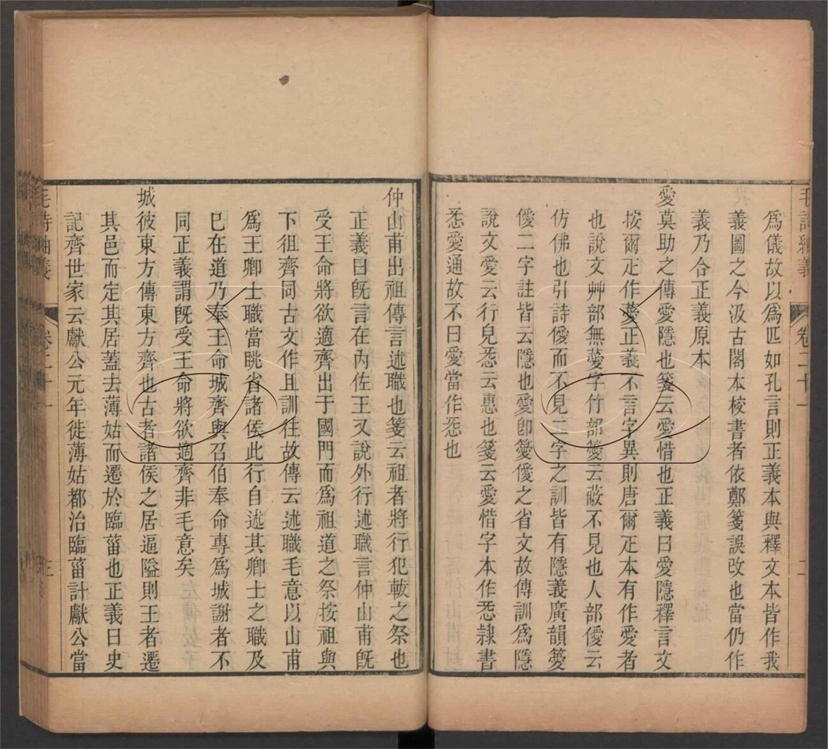 毛詩紬義 卷二十一 二
為儀故以為匹如孔言則正義本與釋文本皆作我
義圖之今汲古閣本校書者依鄭箋誤改也當仍作
義乃合正義原本
愛莫助之傳愛隱也箋云愛惜也正義曰愛隱釋言文
按爾疋作薆正義不言字異則唐爾疋本有作愛者
也說文艸部無薆字竹部籆云蔽不見也人部僾云
仿佛也引詩僾而不見二字之訓皆有隱義廣韻薆
僾二字註皆云隱也愛卽薆僾之省文故傳訓為隱
說文愛云行皃㤅云惠也箋云愛惜字本作㤅隷書
㤅愛通故不曰愛當作㤅也
仲山甫出祖傳言述職也箋云祖者將行犯軷之祭也
正義曰旣言在內佐王又說外行述職言仲山甫旣
受王命將欲適齊出于國門而為祖道之祭按祖與
下徂齊同古文作且訓往故傳云述職毛意以山甫
為王卿士職當眺省諸侯此行自述其卿士之職及
已在道乃奉王命城齊與召伯奉命專為城謝者不
同正義謂旣受王命將欲適齊非毛意矣
城彼東方傳東方齊也古者諸侯之居逼隘則王者遷
其邑而定其居蓋去薄姑而遷於臨菑也正義曰史
記齊世家云獻公元年徙薄姑都治臨菑計獻公當
毛詩紬義 卷二十一 三